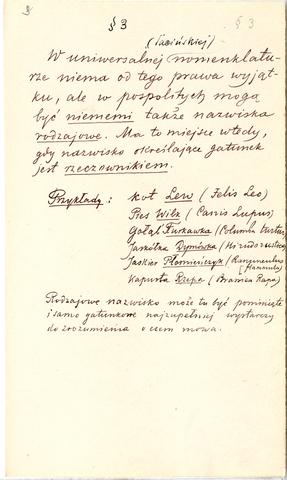 § 3
§ 3
(łacińskiej)
W uniwersalnej nomenklatu-
rze niema od tego prawa wyjąt-
ku, ale w pospolitych mogą
być niememi także nazwiska
rodzajowe. Ma to miejsce wtedy,
gdy nazwisko określające gatunek
jest rzeczownikiem.
Przykłady: Kot Lew (Felis Leo)
Pies Wilk (Canis Lupus)
Gołąb Turkawka (Columba turtur)
Jaskółka Dymówka (Hirudo rustica)
Jaskier Płomieńczyk (Ranunculus
[Flammula)
Kapusta Rzepa (Brassica Rapa)
Rodzajowe nazwisko może tu być pominięte
i samo gatunkowe najzupełniej wystarczy
do zrozumienia o czem mowa.